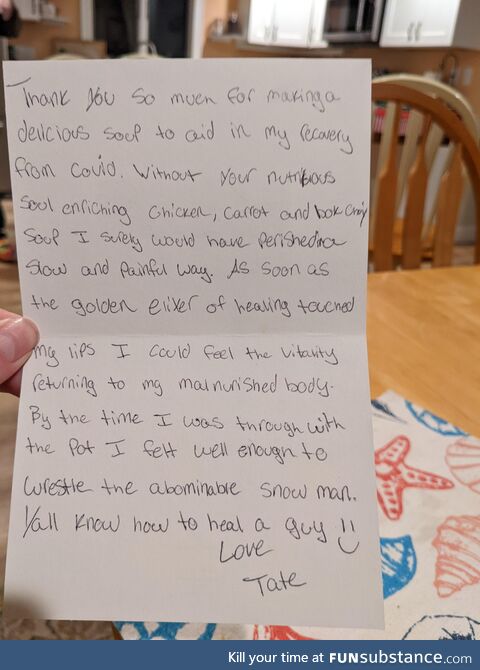 Thank you so much for making a
delicious soup to aid in my recovery
from Covid. Without your nutritious
soul enriching chicken, carrot and bok choy
soup I surely would have perished in a
slow and painful way. As soon as
the golden elixer of healing touched
my lips I could feel the vitality
returning to my malnurished body.
By the time I was through with
the pot I felt well enough to
wrestle the abominable snow man.
Y'all know how to heal a guy !!
Love
Tate
Kill your time at FUNsubstance.com